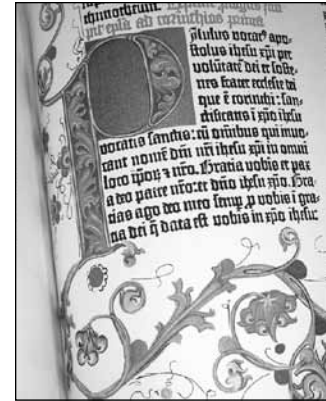 epla ad corinthios prima
Paulus vocatꝰ apo-
stolus ihesu xp̄i per
volūtatē dei et soste-
nes frater ecclesie dei
que ē corinthi: san-
ctificatis ī xp̄o ihesu
vocatis sanctis: cū omībus qui invo-
cant nomē dn̄i nr̄i ihesu xp̄i in omni
loco ip̄oꝝ ⁊ nr̄o. Gratia vobis et pax
a deo patre nr̄o: et dn̄o ihesu xp̄o. Gra-
tias ago deo meo semp̲ ꝓ vobis ī gra-
tia dei q̄ data est vobis in xp̄o ihesu: